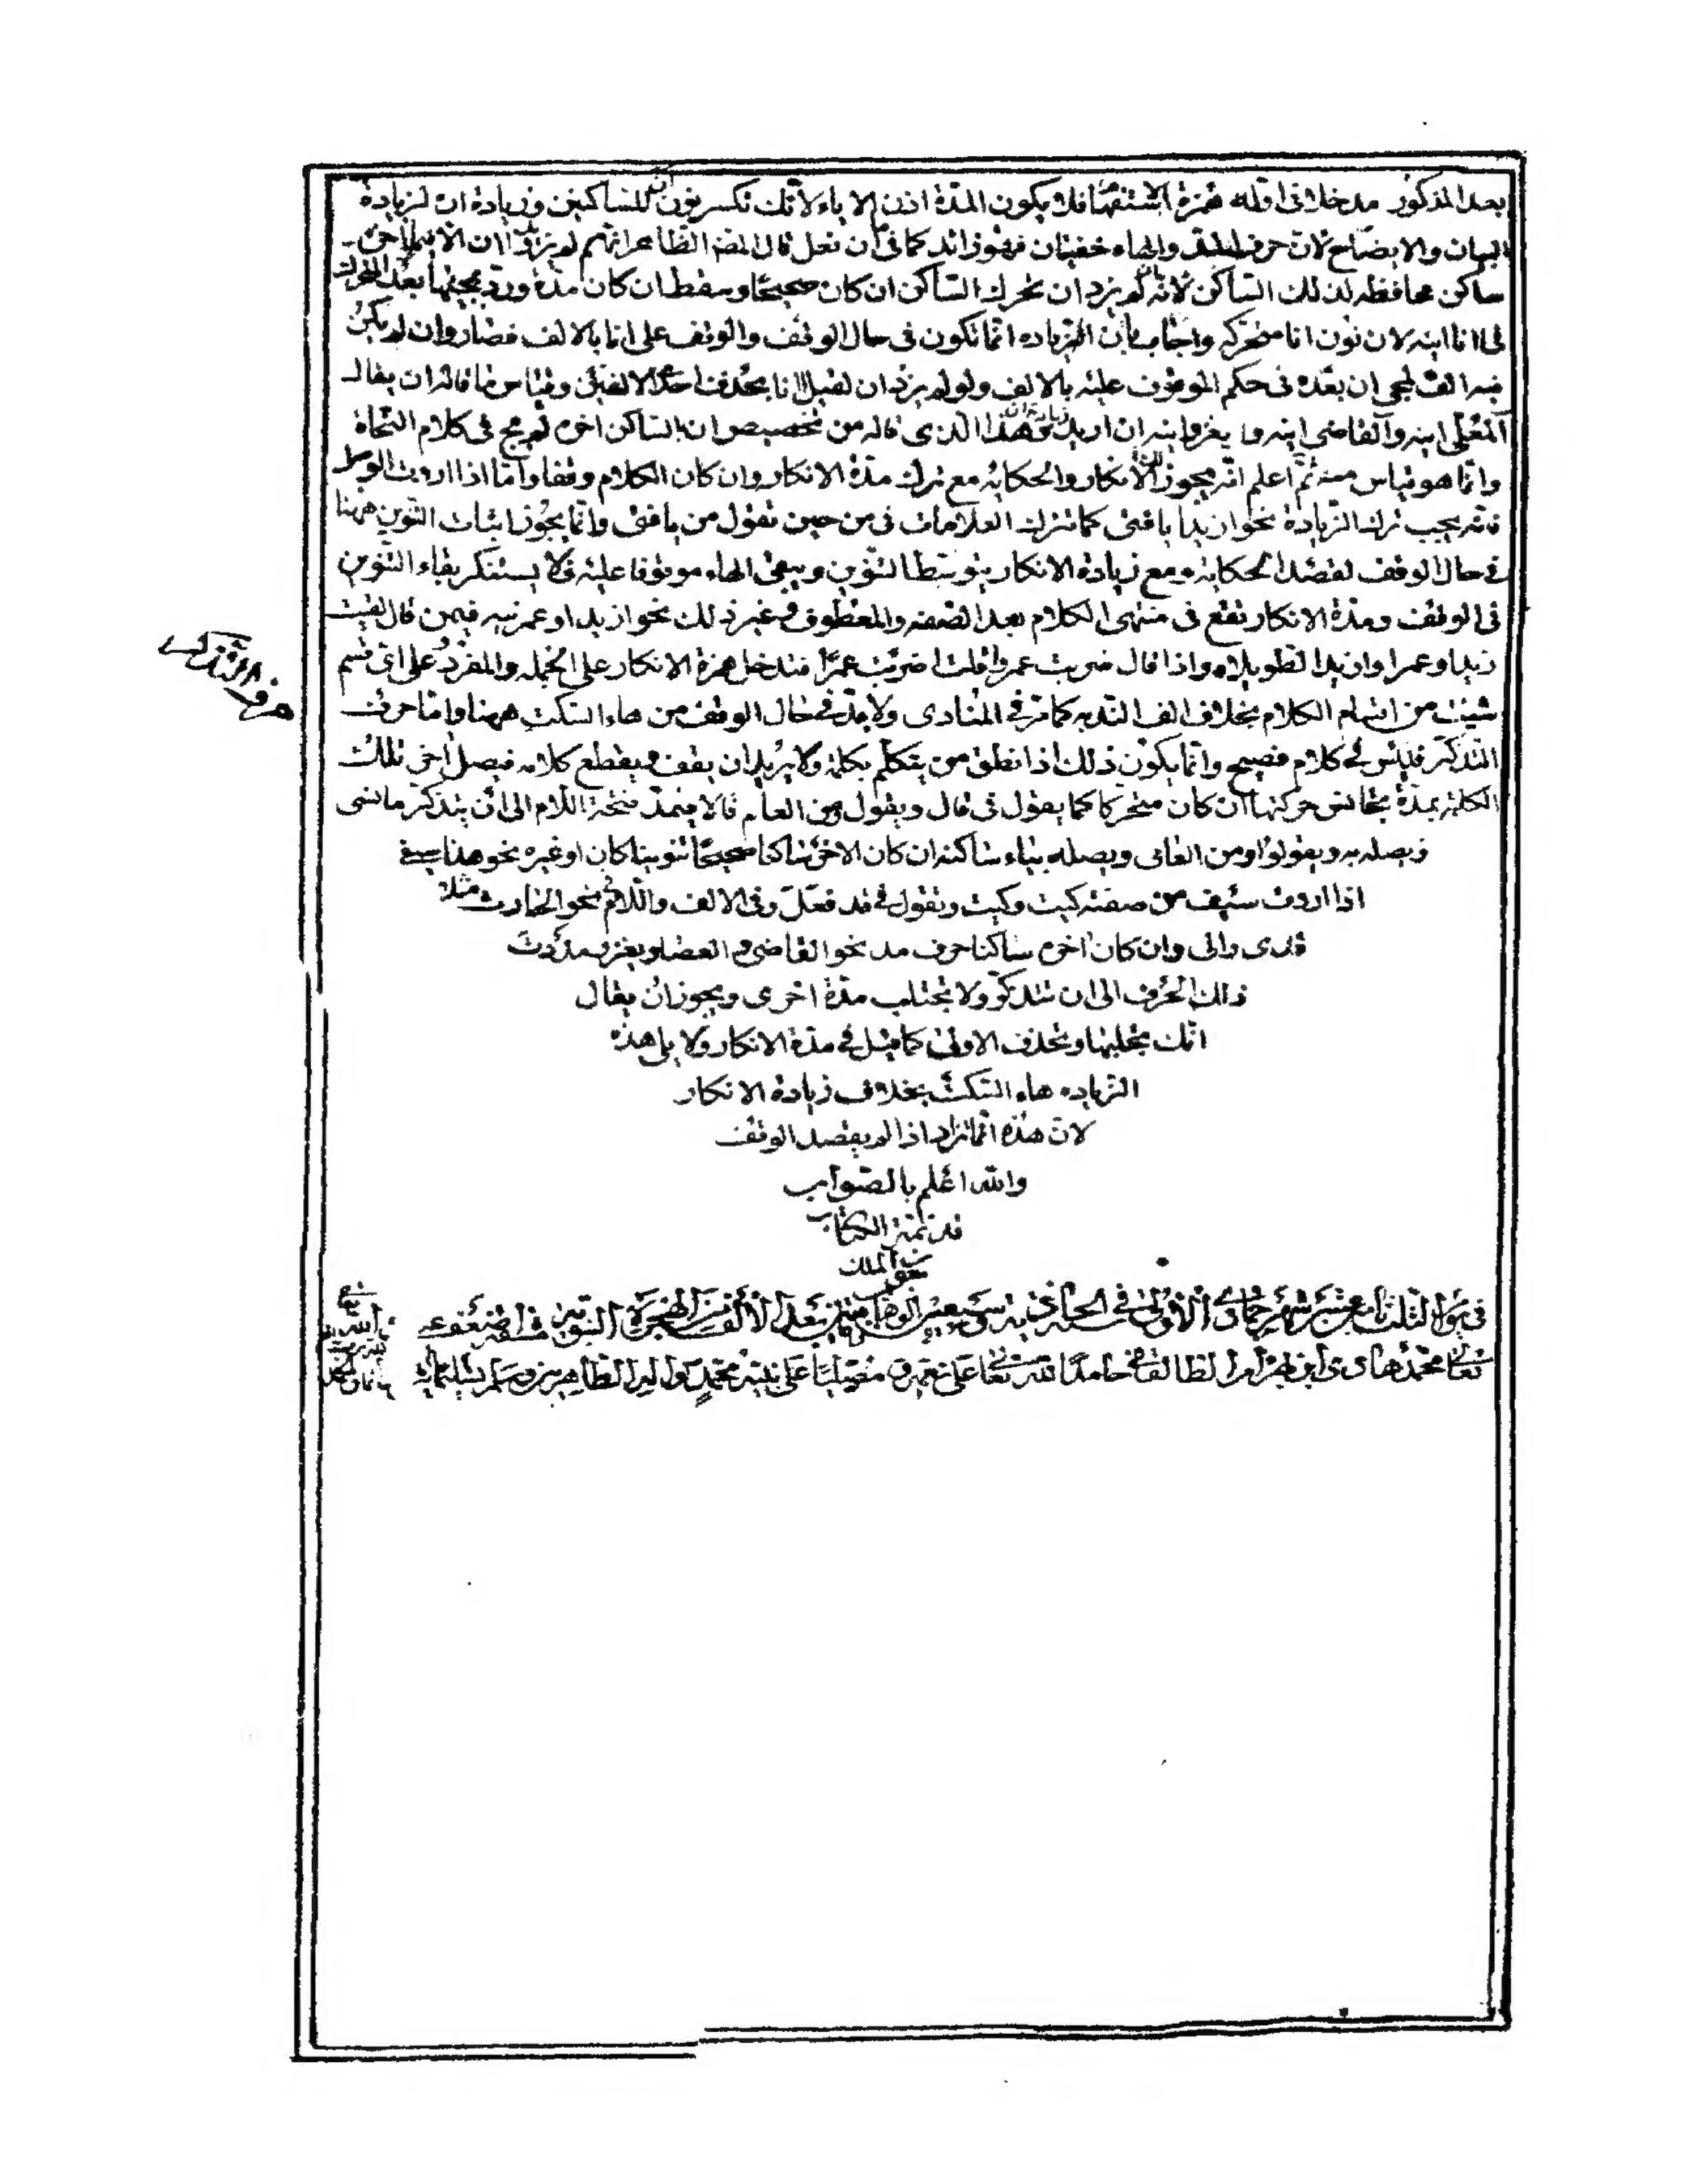 بعد المذكور مدخلا فى اوله همزة الاستفهام فلا يكون المدة اذن الا ياء لانك تكسر نون ان للساكنين وزيادة ان لزيادة
البيان والايضاح لان حرف المد والهاء خفيتان فهو زائد كما فى ما ان فعل قال المص الظاهر انهم لم يزيدوا ان الا فيما آخره
ساكن محافظة لذلك الساكن لانه لو لم يزد ان تحرك الساكن ان كان صحيحا وسقط ان كان مدة ورد مجيئها بعد المتحرك
فى اانا انيه لان نون انا متحركة واجاب بان الزيادة انما تكون فى حال الوقف والوقف على انا بالالف فصار وان لم يكن
فيه الف لمجى ان بعده فى حكم الموقوف عليه بالالف ولو لم يزد ان لقيل اانا بحذف احد الالفين وقياس ما قاله ان يقال
آلمعلى انيه وآلقاضى انيه وا يغزو انيه ان اريد زيادة ان وهذا الذى قاله من تخصيص ان بالساكن آخره لم يجئ فى كلام النحاة
وانما هو قياس منه ثم اعلم انه يجوز لك الانكار والحكاية مع ترك مدة الانكار وان كان الكلام وقفا واما اذا اردت الوصل
فانه يجب ترك الزيادة نحو ازيدا يا فتى كما تترك العلامات فى من حين تقول من يا فتى وانما يجوز اثبات التنوين ههنا
فى حال الوقف لقصد الحكاية ومع زيادة الانكار يتوسط التنوين ويبقى الهاء موقوفا عليه فلا يستنكر بقاء التنوين
فى الوقف ومدة الانكار تقع فى منتهى الكلام بعد الصفة والمعطوف وغير ذلك نحو ازيدا وعمرنيه فيمن قال لقيت
زيدا وعمرا وازيدا الطويلاه واذا قال ضربت عمرا قلت اضربت عمراه فتدخل همزة الانكار على الجملة والمفرد على اى قسم
شئت من اقسام الكلام بخلاف الف الندبة كما مر فى المنادى ولا بد فى حال الوقف من هاء السكت ههنا واما حرف
التذكر فليس فى كلام فصيح وانما يكون ذلك اذا نطق من يتكلم بكلمة ولا يريد ان يقف ويقطع كلامه فيصل آخر تلك
الكلمة بمدة تجانس حركتها ان كان متحركا كما يقول فى قال ويقول ومن العام قالا فيمد فتحة اللام الى ان يتذكر ما نسى
فيصله به ويقولوا ومن العامى ويصله بياء ساكنة ان كان الآخر ساكنا صحيحا تنوينا كان او غيره نحو هذا سيفنى
اذا اردت سيف من صفته كيت وكيت وتقول فى قد فعل وفى الالف واللام نحو الحارث مثلا
قدى والى وان كان آخره ساكنا حرف مد نحو القاضى والعصا ويغزو مددت
ذلك الحرف الى ان تتذكر ولا تجتلب مدة اخرى ويجوز ان يقال
انك تجلبها وتحذف الاولى كما قيل فى مدة الانكار ولا يلى هذه
الزيادة هاء السكت بخلاف زيادة الانكار
لان هذه انما تزاد اذا لم يقصد الوقف
والله اعلم بالصواب
قد تمت الكتاب
بعون الملك
فى يوم الثلثا عشر شهر جمادى الاولى فى سنة الحادى وسبعين بعد الالف من الهجرة النبوية
تعالى محمد هادى ابن الطالقانى حامدا لله تعالى على نعمه ومصليا على نبيه محمد وآله الطاهرين وسلم تسليما
حرف التذكر